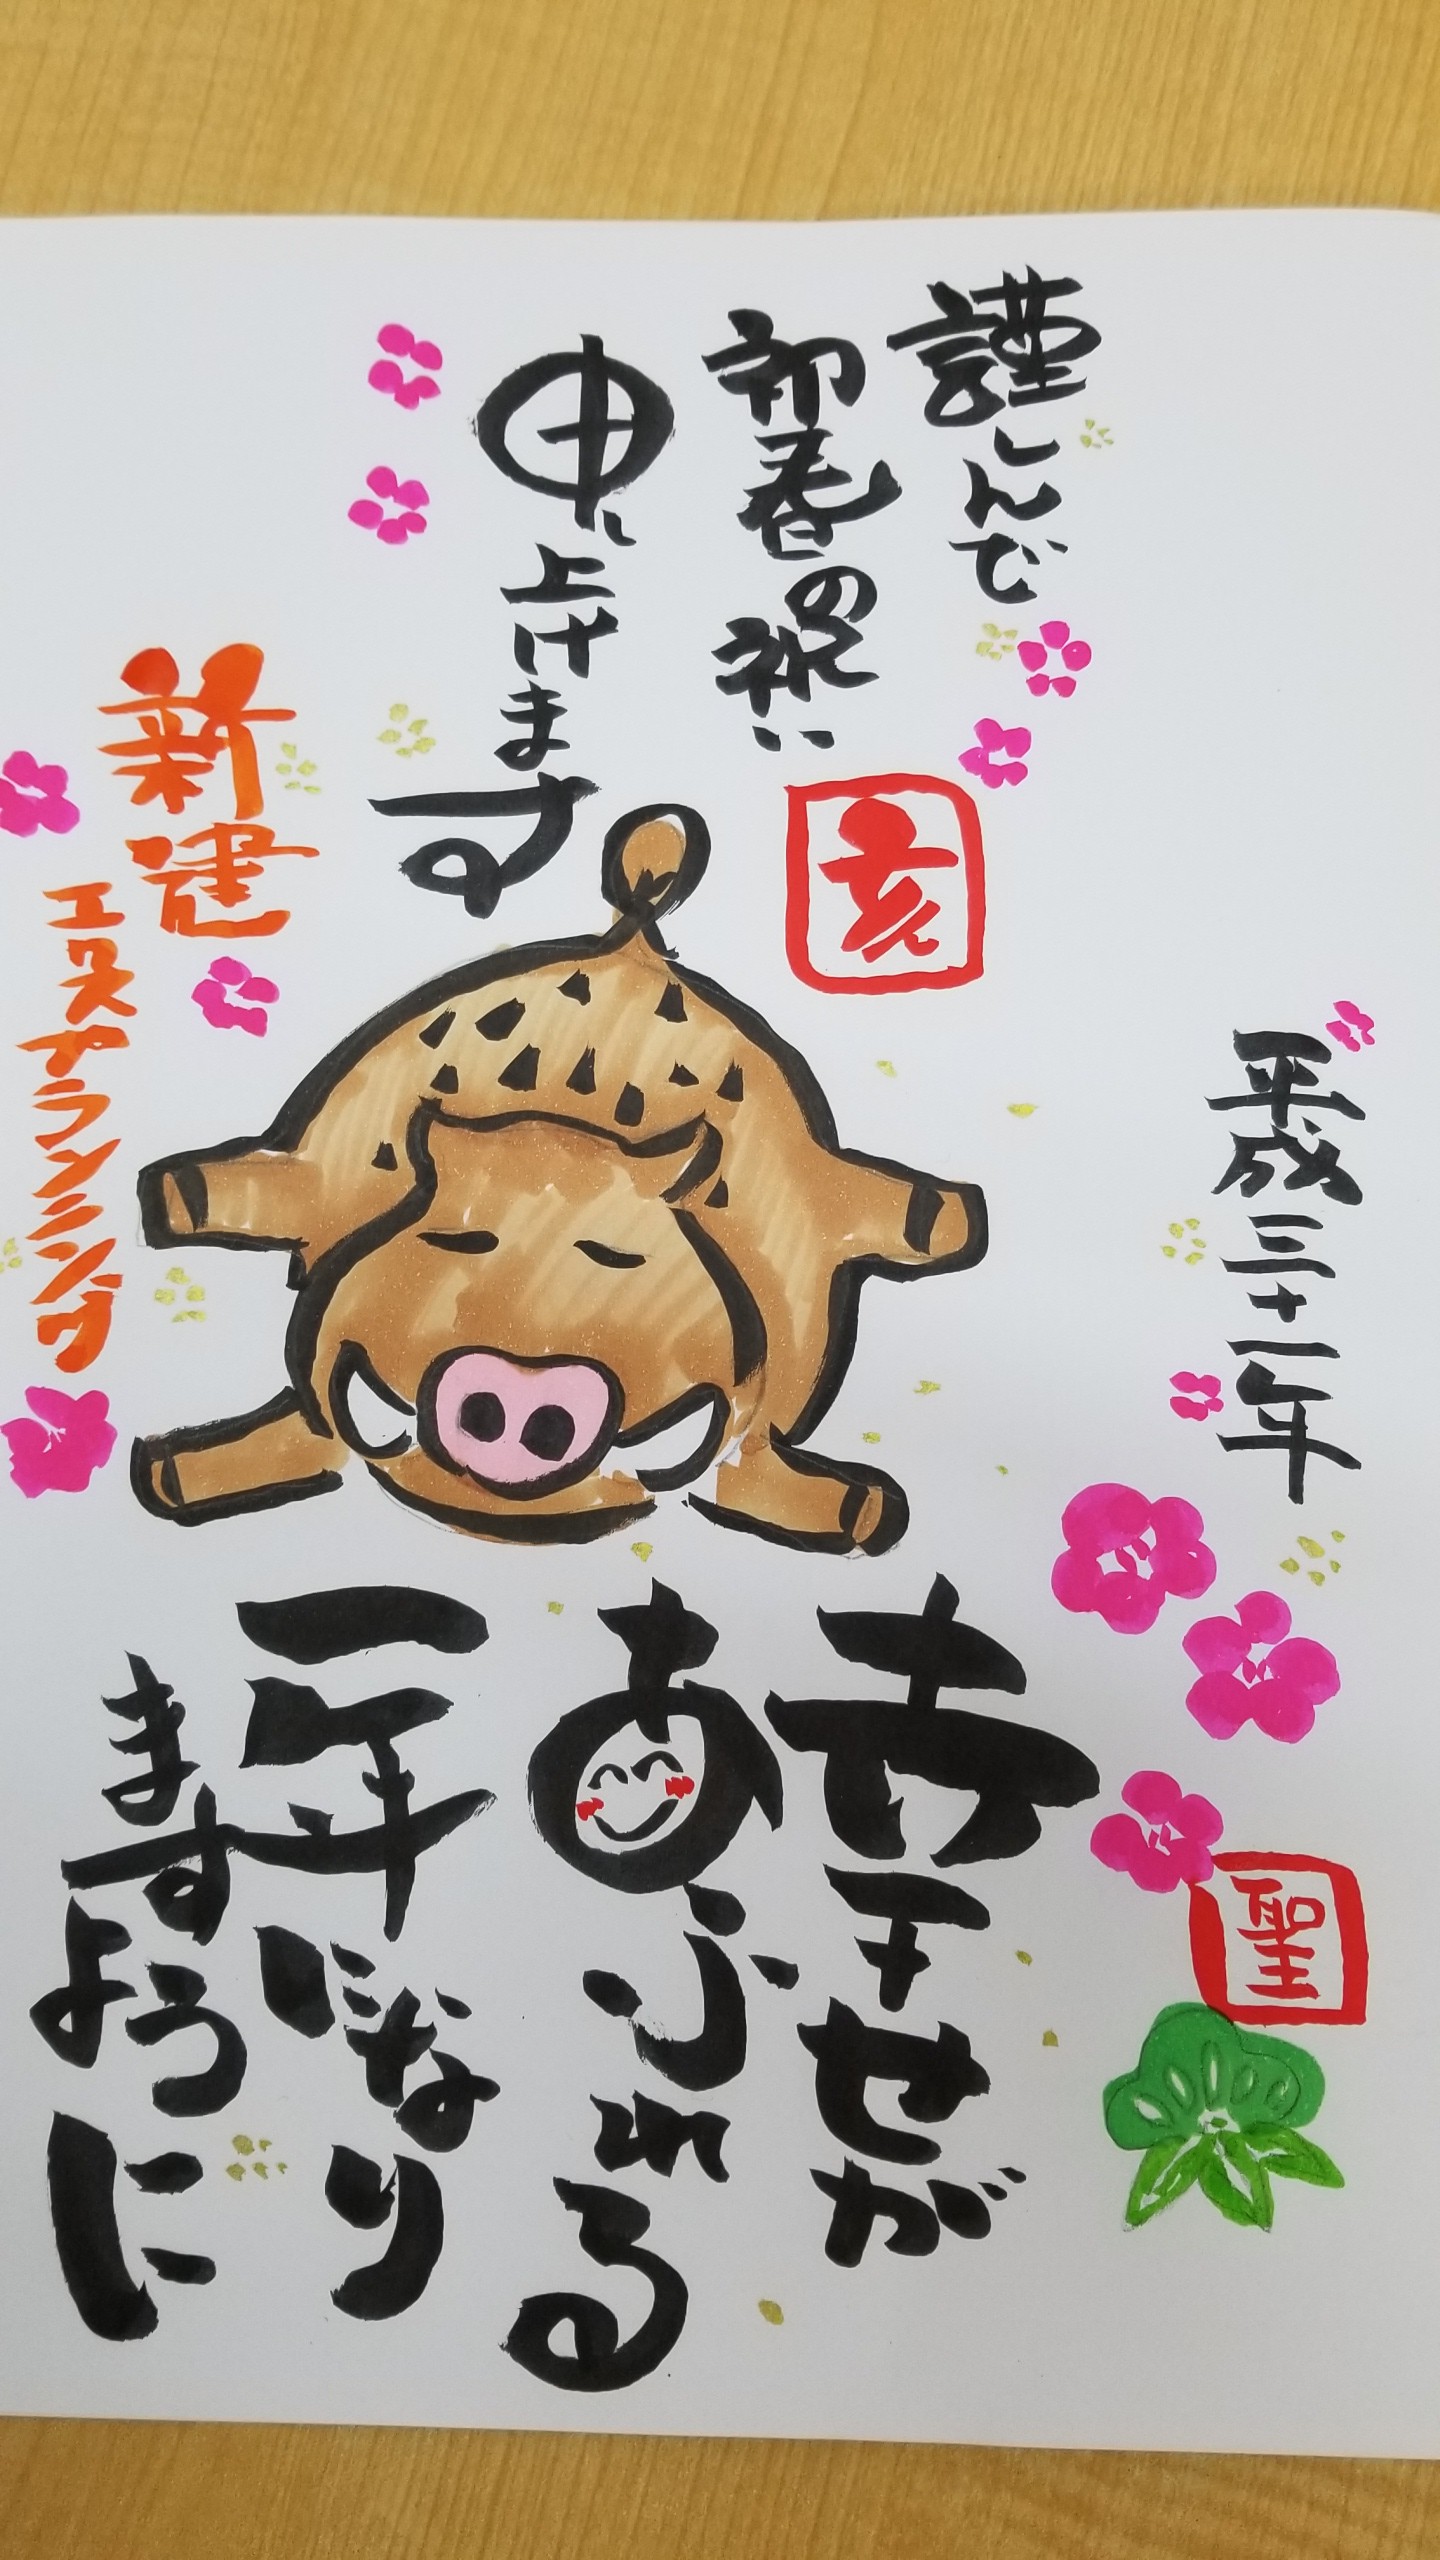 謹んで
初春の祝い
申し上げます
亥
平成三十一年
新建
エクスプランニング
幸せが
あふれる
一年になり
ますように
聖